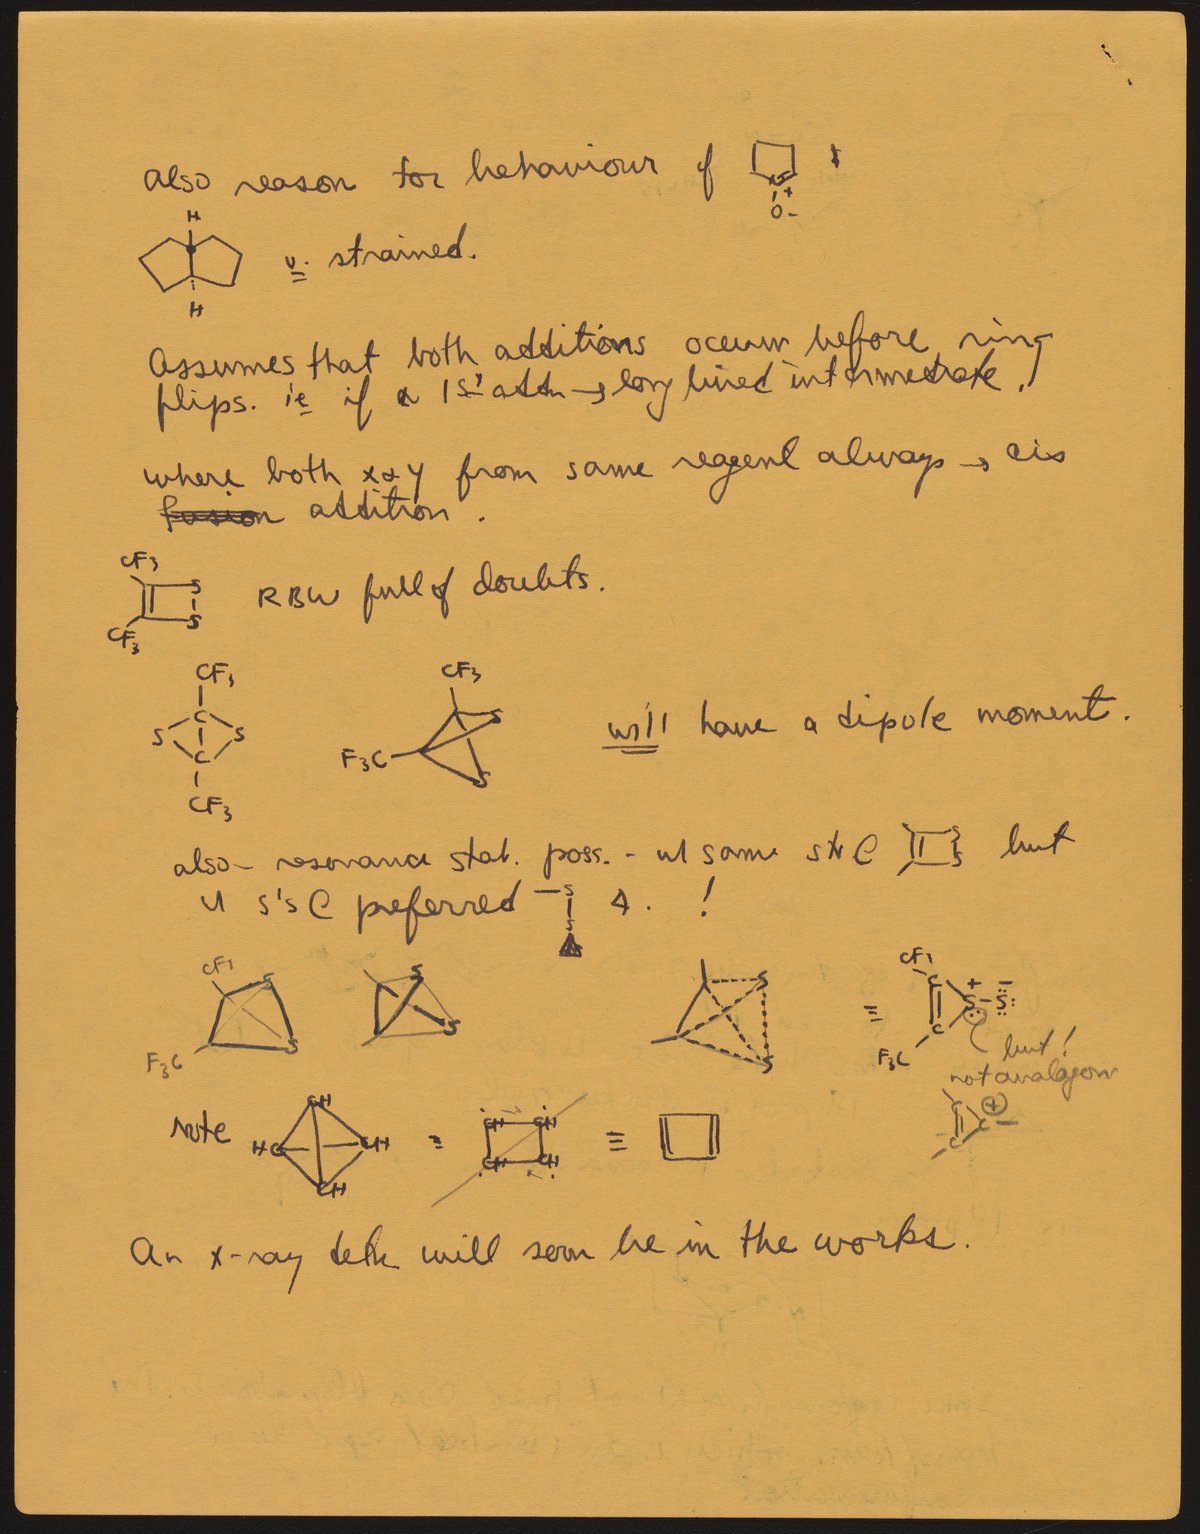 also reason for behaviour of
N
+
O-
H
v. strained.
H
Assumes that both additions occur before ring
flips. ie if 1st addn → long lived intermediate.
where both x & y from same reagent always → cis
fusion addition.
CF3
S
S
CF3
RBW full of doubts.
CF3
C
S S
C
CF3
CF3
S
F3C
S
will have a dipole moment.
also - resonance stab. poss. - w/ same C S S but
w/ S's C preferred S S !
CF3 S
F3C S
S
S
S
S
≡
CF3
C
C
F3C
+ -
S-S:
but!
not analagous
+
C
Note
CH
HC CH
CH
=
CH CH
CH CH
≡
An x-ray detn will soon be in the works.